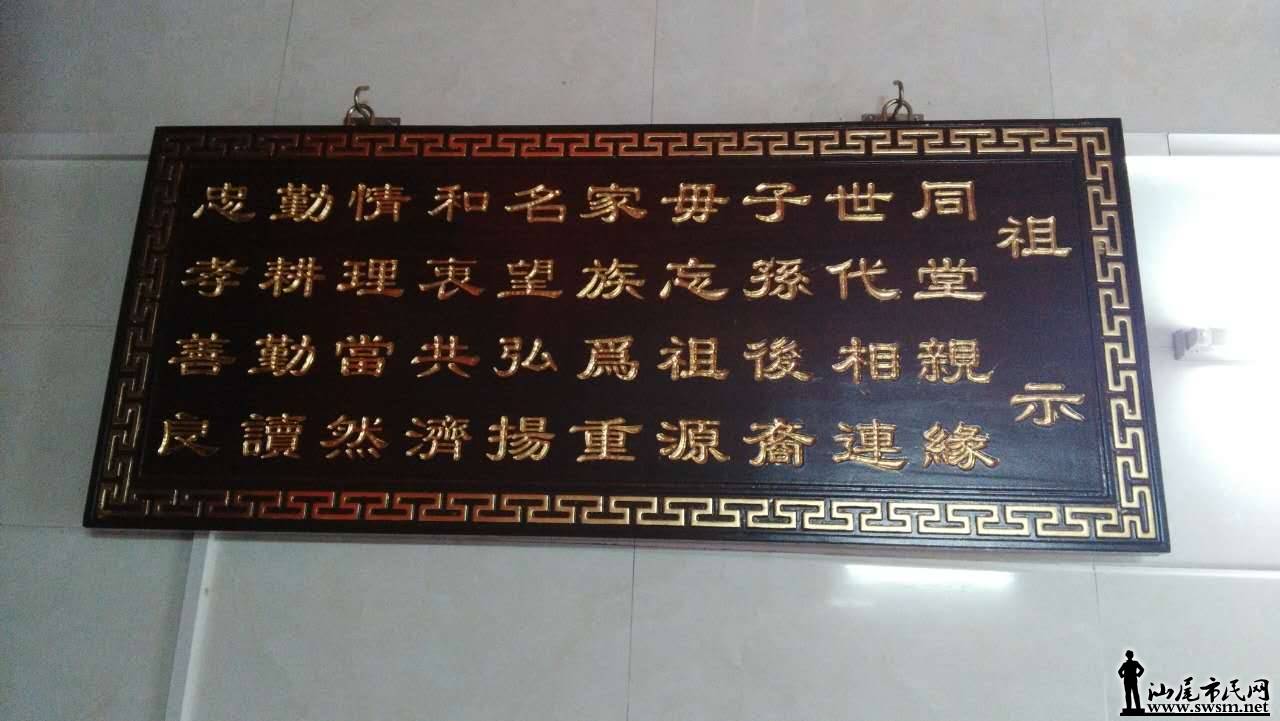 祖示
同堂親緣
世代相連
子孫後裔
毋忘祖源
家族爲重
名望弘揚
和衷共濟
情理當然
勤耕勤讀
忠孝善良
汕尾市民网
www.swsm.net